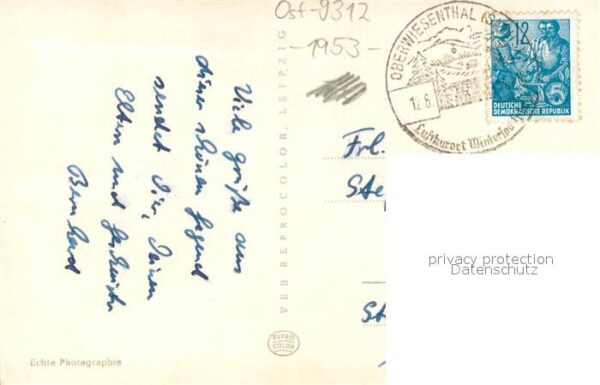 Ost-9312
-1953-
OBERWIESENTHAL
12.6
Luftkurort
12
DEUTSCHE
DEMOKRATISCHE REPUBLIK
Viele Grüße aus
dieser schönen Gegend
sendet Dir, Deinen
Eltern und Geschwister
Bernhard
VEB REPROCOLOR, LEIPZIG
Frl.
St
REPRO
COLOR
Echte Photographie
privacy protection
Datenschutz